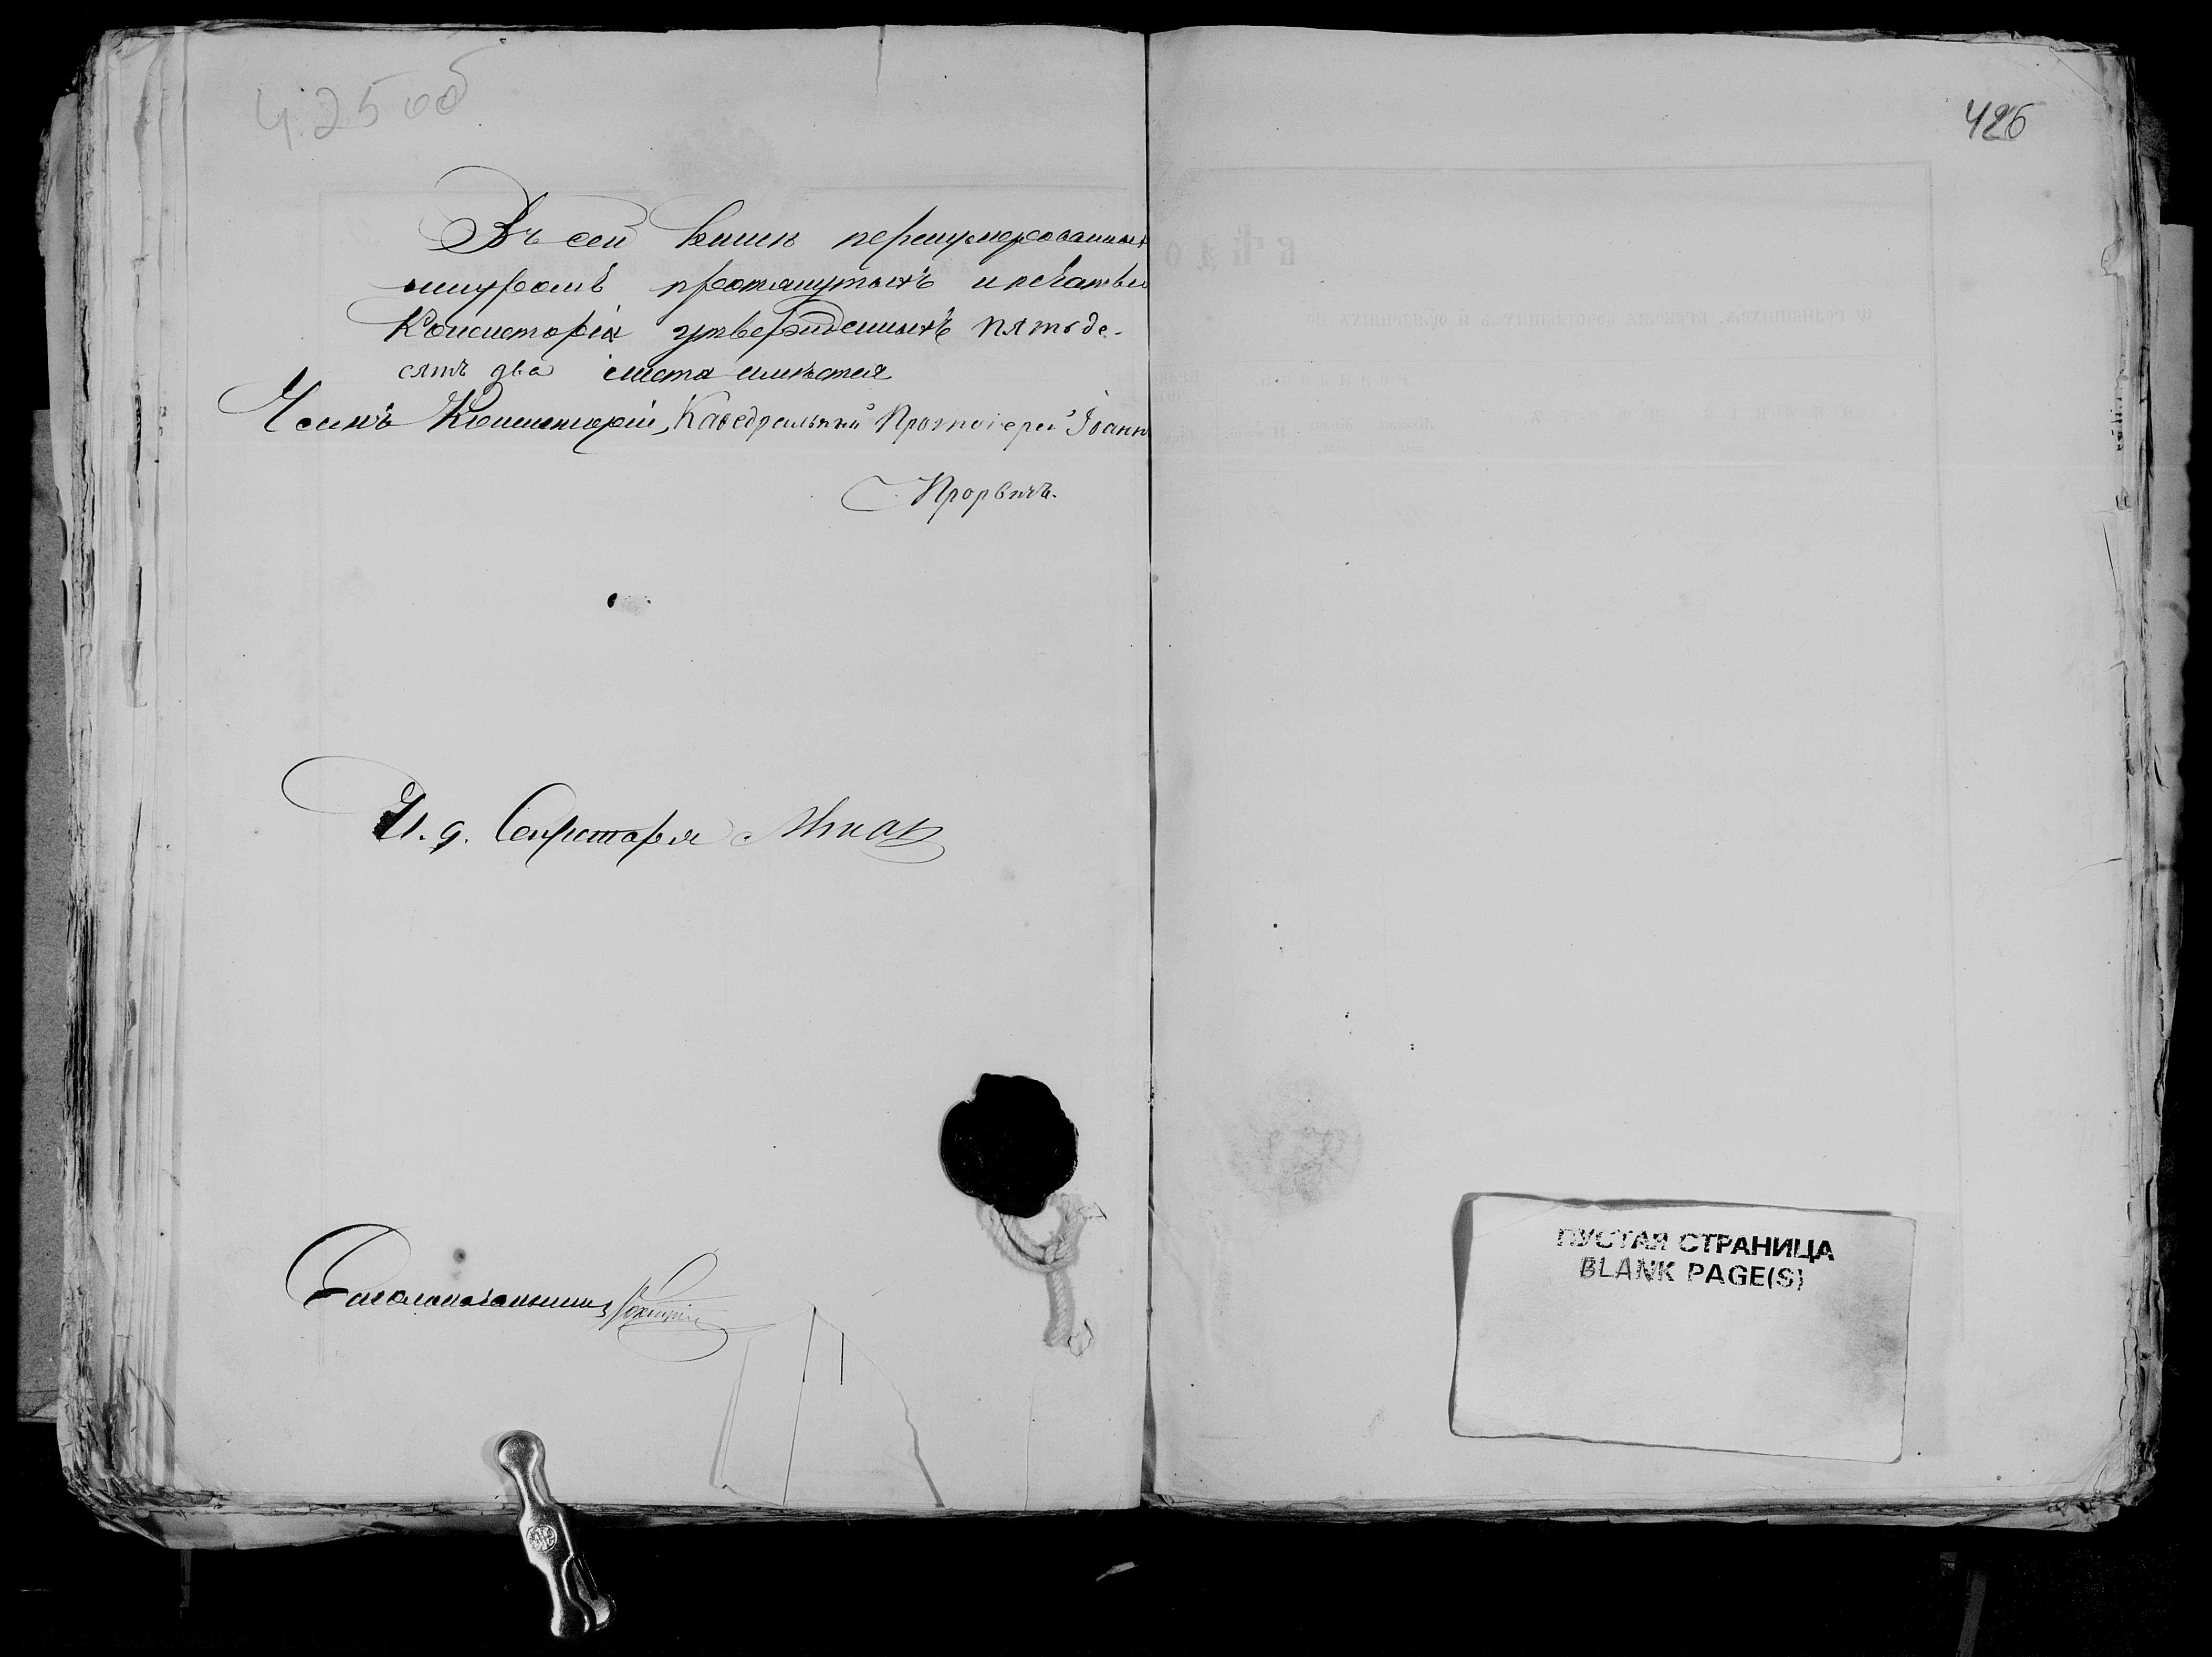 425 об
Въ сей книгѣ перенумерованныхъ
шнуромъ протянутыхъ и печатью
Консисторіи утвержденныхъ пятьде-
сятъ два листа имѣется
Членъ Консисторіи, Каѳедральный Протоіерей Іоаннъ
И. д. Секретаря
Столоначальникъ
426
ПУСТАЯ СТРАНИЦА
BLANK PAGE(S)